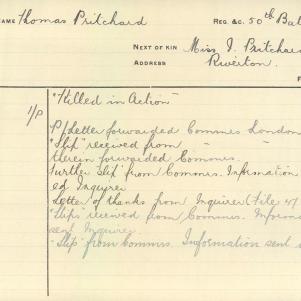 NAME Thomas Pritchard REG. &C. 50th Bat
NEXT OF KIN Miss I. Pritchard
ADDRESS Riverton.
"Killed in Action"
1/P
P/Letter forwarded Commrs London
"Slip" received from " -
therein forwarded Commrs.
Further Slip from Commrs. Information
ed Inquirer
Letter of thanks from Inquirer (File 41
"Slips" received from Commrs. Informa
sent Inquirer.
"Slip" from Commrs. Information sent